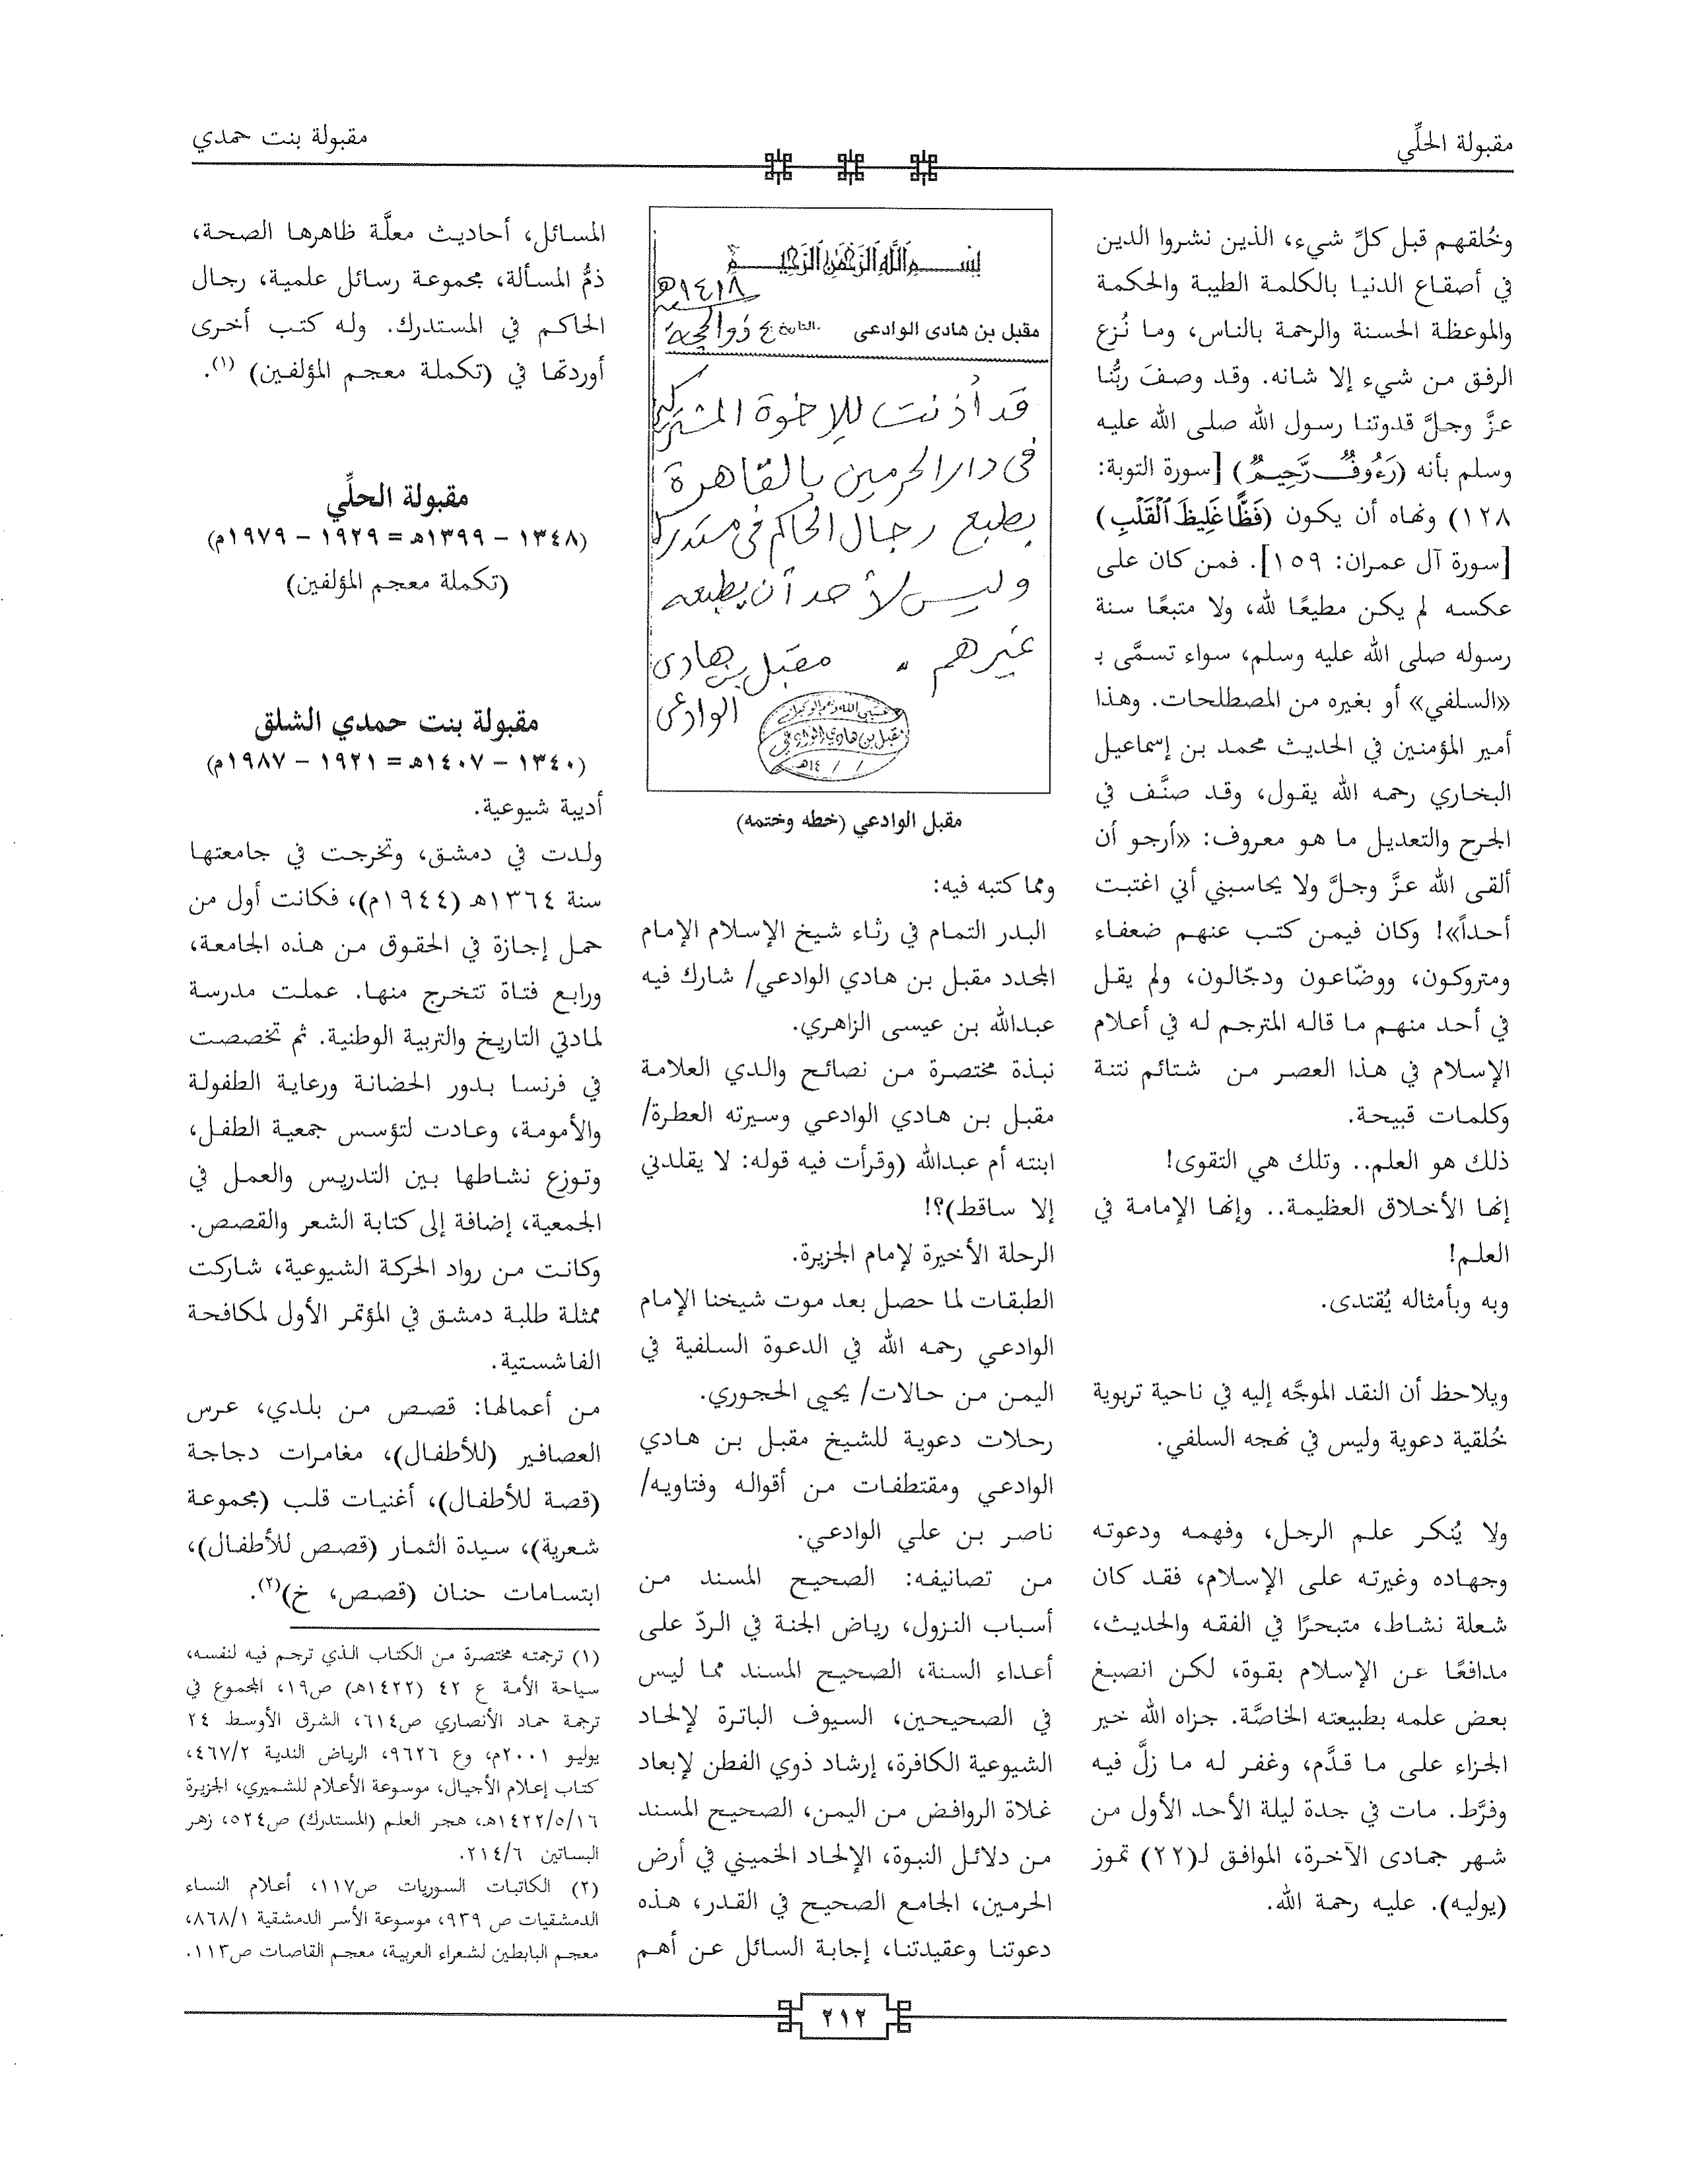 مقبولة الحلِّي
مقبولة بنت حمدي
وخُلقهم قبل كلِّ شيء، الذين نشروا الدين
في أصقاع الدنيا بالكلمة الطيبة والحكمة
والموعظة الحسنة والرحمة بالناس، وما نُزع
الرفق من شيء إلا شانه. وقد وصفَ ربُّنا
عزَّ وجلَّ قدوتنا رسول الله صلى الله عليه
وسلم بأنه (رَءُوفٌ رَّحِيمٌ) [سورة التوبة:
١٢٨) ونهاه أن يكون (فَظًّا غَلِيظَ ٱلْقَلْبِ)
[سورة آل عمران: ١٥٩]. فمن كان على
عكسه لم يكن مطيعًا لله، ولا متبعًا سنة
رسوله صلى الله عليه وسلم، سواء تسمَّى بـ
«السلفي» أو بغيره من المصطلحات. وهذا
أمير المؤمنين في الحديث محمد بن إسماعيل
البخاري رحمه الله يقول، وقد صنَّف في
الجرح والتعديل ما هو معروف: «أرجو أن
ألقى الله عزَّ وجلَّ ولا يحاسبني أني اغتبت
أحداً»! وكان فيمن كتب عنهم ضعفاء
ومتروكون، ووضّاعون ودجّالون، ولم يقل
في أحد منهم ما قاله المترجم له في أعلام
الإسلام في هذا العصر من شتائم نتنة
وكلمات قبيحة.
ذلك هو العلم.. وتلك هي التقوى!
إنها الأخلاق العظيمة.. وإنها الإمامة في
العلم!
وبه وبأمثاله يُقتدى.
ويلاحظ أن النقد الموجَّه إليه في ناحية تربوية
خُلقية دعوية وليس في نهجه السلفي.
ولا يُنكر علم الرجل، وفهمه ودعوته
وجهاده وغيرته على الإسلام، فقد كان
شعلة نشاط، متبحرًا في الفقه والحديث،
مدافعًا عن الإسلام بقوة، لكن انصبغ
بعض علمه بطبيعته الخاصَّة. جزاه الله خير
الجزاء على ما قدَّم، وغفر له ما زلَّ فيه
وفرَّط. مات في جدة ليلة الأحد الأول من
شهر جمادى الآخرة، الموافق لـ(٢٢) تموز
(يوليه). عليه رحمة الله.
بسم الله الرحمن الرحيم
١٤١٨هـ
مقبل بن هادى الوادعى التاريخ ذو الحجة
قد أذنت للإخوة المشتركين
فى دار الحرمين بالقاهرة
بطبع رجال الحاكم فى مستدركه
وليس لأحد أن يطبعه
غيرهم . مقبل بن هادى
الوادعى
حسبي الله ونعم الوكيل
مقبل بن هادي الوادعي
/ / ١٤هـ
مقبل الوادعي (خطه وختمه)
ومما كتبه فيه:
البدر التمام في رثاء شيخ الإسلام الإمام
المجدد مقبل بن هادي الوادعي/ شارك فيه
عبدالله بن عيسى الزاهري.
نبذة مختصرة من نصائح والدي العلامة
مقبل بن هادي الوادعي وسيرته العطرة/
ابنته أم عبدالله (وقرأت فيه قوله: لا يقلدني
إلا ساقط)؟!
الرحلة الأخيرة لإمام الجزيرة.
الطبقات لما حصل بعد موت شيخنا الإمام
الوادعي رحمه الله في الدعوة السلفية في
اليمن من حالات/ يحيى الحجوري.
رحلات دعوية للشيخ مقبل بن هادي
الوادعي ومقتطفات من أقواله وفتاويه/
ناصر بن علي الوادعي.
من تصانيفه: الصحيح المسند من
أسباب النزول، رياض الجنة في الردّ على
أعداء السنة، الصحيح المسند مما ليس
في الصحيحين، السيوف الباترة لإلحاد
الشيوعية الكافرة، إرشاد ذوي الفطن لإبعاد
غلاة الروافض من اليمن، الصحيح المسند
من دلائل النبوة، الإلحاد الخميني في أرض
الحرمين، الجامع الصحيح في القدر، هذه
دعوتنا وعقيدتنا، إجابة السائل عن أهم
المسائل، أحاديث معلَّة ظاهرها الصحة،
ذمُّ المسألة، مجموعة رسائل علمية، رجال
الحاكم في المستدرك. وله كتب أخرى
أوردتها في (تكملة معجم المؤلفين) (١).
مقبولة الحلِّي
(١٣٤٨ - ١٣٩٩هـ = ١٩٢٩ - ١٩٧٩م)
(تكملة معجم المؤلفين)
مقبولة بنت حمدي الشلق
(١٣٤٠ - ١٤٠٧هـ = ١٩٢١ - ١٩٨٧م)
أديبة شيوعية.
ولدت في دمشق، وتخرجت في جامعتها
سنة ١٣٦٤هـ (١٩٤٤م)، فكانت أول من
حمل إجازة في الحقوق من هذه الجامعة،
ورابع فتاة تتخرج منها. عملت مدرسة
لمادتي التاريخ والتربية الوطنية. ثم تخصصت
في فرنسا بدور الحضانة ورعاية الطفولة
والأمومة، وعادت لتؤسس جمعية الطفل،
وتوزع نشاطها بين التدريس والعمل في
الجمعية، إضافة إلى كتابة الشعر والقصص.
وكانت من رواد الحركة الشيوعية، شاركت
ممثلة طلبة دمشق في المؤتمر الأول لمكافحة
الفاشستية.
من أعمالها: قصص من بلدي، عرس
العصافير (للأطفال)، مغامرات دجاجة
(قصة للأطفال)، أغنيات قلب (مجموعة
شعرية)، سيدة الثمار (قصص للأطفال)،
ابتسامات حنان (قصص، خ)(٢).
(١) ترجمته مختصرة من الكتاب الذي ترجم فيه لنفسه،
سياحة الأمة ع ٤٢ (١٤٢٢هـ) ص١٩، المجموع في
ترجمة حماد الأنصاري ص٦١٤، الشرق الأوسط ٢٤
يوليو ٢٠٠١م، وع ٩٦٢٦، الرياض الندية ٤٦٧/٢،
كتاب إعلام الأجيال، موسوعة الأعلام للشميري، الجزيرة
١٤٢٢/٥/١٦هـ، هجر العلم (المستدرك) ص٥٢٤، زهر
البساتين ٢١٤/٦.
(٢) الكاتبات السوريات ص١١٧، أعلام النساء
الدمشقيات ص ٩٣٩، موسوعة الأسر الدمشقية ٨٦٨/١،
معجم البابطين لشعراء العربية، معجم القاصات ص١١٣.
٢١٢